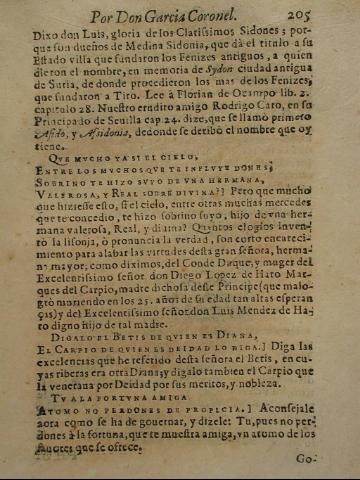 Por Don Garcia Coronel. 205
Dixo don Luis, gloria de los Clarissimos Sidones; por-
que son dueños de Medina Sidonia, que dà el titulo a su
Estado villa que fundaron los Fenizes antiguos, a quien
dieron el nombre, en memoria de Sydon ciudad antigua
de Suria, de donde procedieron los mas de los Fenizes,
que fundaron a Tiro. Lee à Florian de Ocampo lib. 2.
capitulo 28. Nuestro erudito amigo Rodrigo Caro, en su
Principado de Seuilla cap. 24. dize, que se llamò primero
Asido, y Assidonia, dedonde se deribò el nombre que oy
tiene.
QVE MVCHO YA SI EL CIELO,
ENTRE LOS MVCHOS QVE TE INFLVYE DONES,
SOBRINO TE HIZO SVYO DE VNA HERMANA,
VALEROSA, Y REAL SOBRE DIVINA?] Pero que mucho
que hiziesse esto, si el cielo, entre otras muchas mercedes
que te concedio, te hizo sobrino suyo, hijo de vna her-
mana valerosa, Real, y diuina? Quantos elogios inven-
tò la lisonja, ò pronuncia la verdad, son corto encareci-
miento para alabar las virtudes desta gran señora, herma-
na mayor, como diximos, del Conde Duque, y muger del
Excelentissimo señor don Diego Lopez de Haro Mar-
ques del Carpio, madre dichosa deste Principe (que malo-
grò muriendo en los 25. años de su edad tan altas esperan
ças) y del Excelentissimo señor don Luis Mendez de Ha-
ro digno hijo de tal madre.
DIGALO EL BETIS DE QVIEN ES DIANA,
EL CARPIO DE QVIEN ES DEIDAD LO DIGA.] Diga las
excelencias que he referido desta señora el Betis, en cu-
yas riberas era otra Diana; y digalo tambien el Carpio que
la veneraua por Deidad por sus meritos, y nobleza.
TV A LA FORTVNA AMIGA
ATOMO NO PERDONES DE PROPICIA.] Aconsejale
aora como se ha de gouernar, y dizele: Tu, pues no per-
dones à la fortuna, que te muestra amiga, vn atomo de los
fauores que se ofrece.
Go-